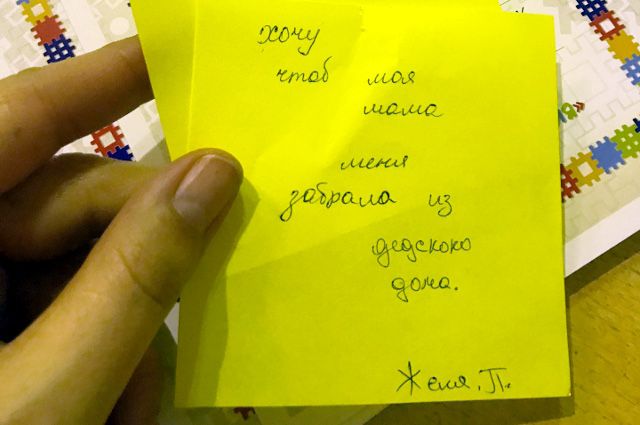 хочу
чтоб моя
мама
меня
забрала из
дедского
дома.
Женя. П.